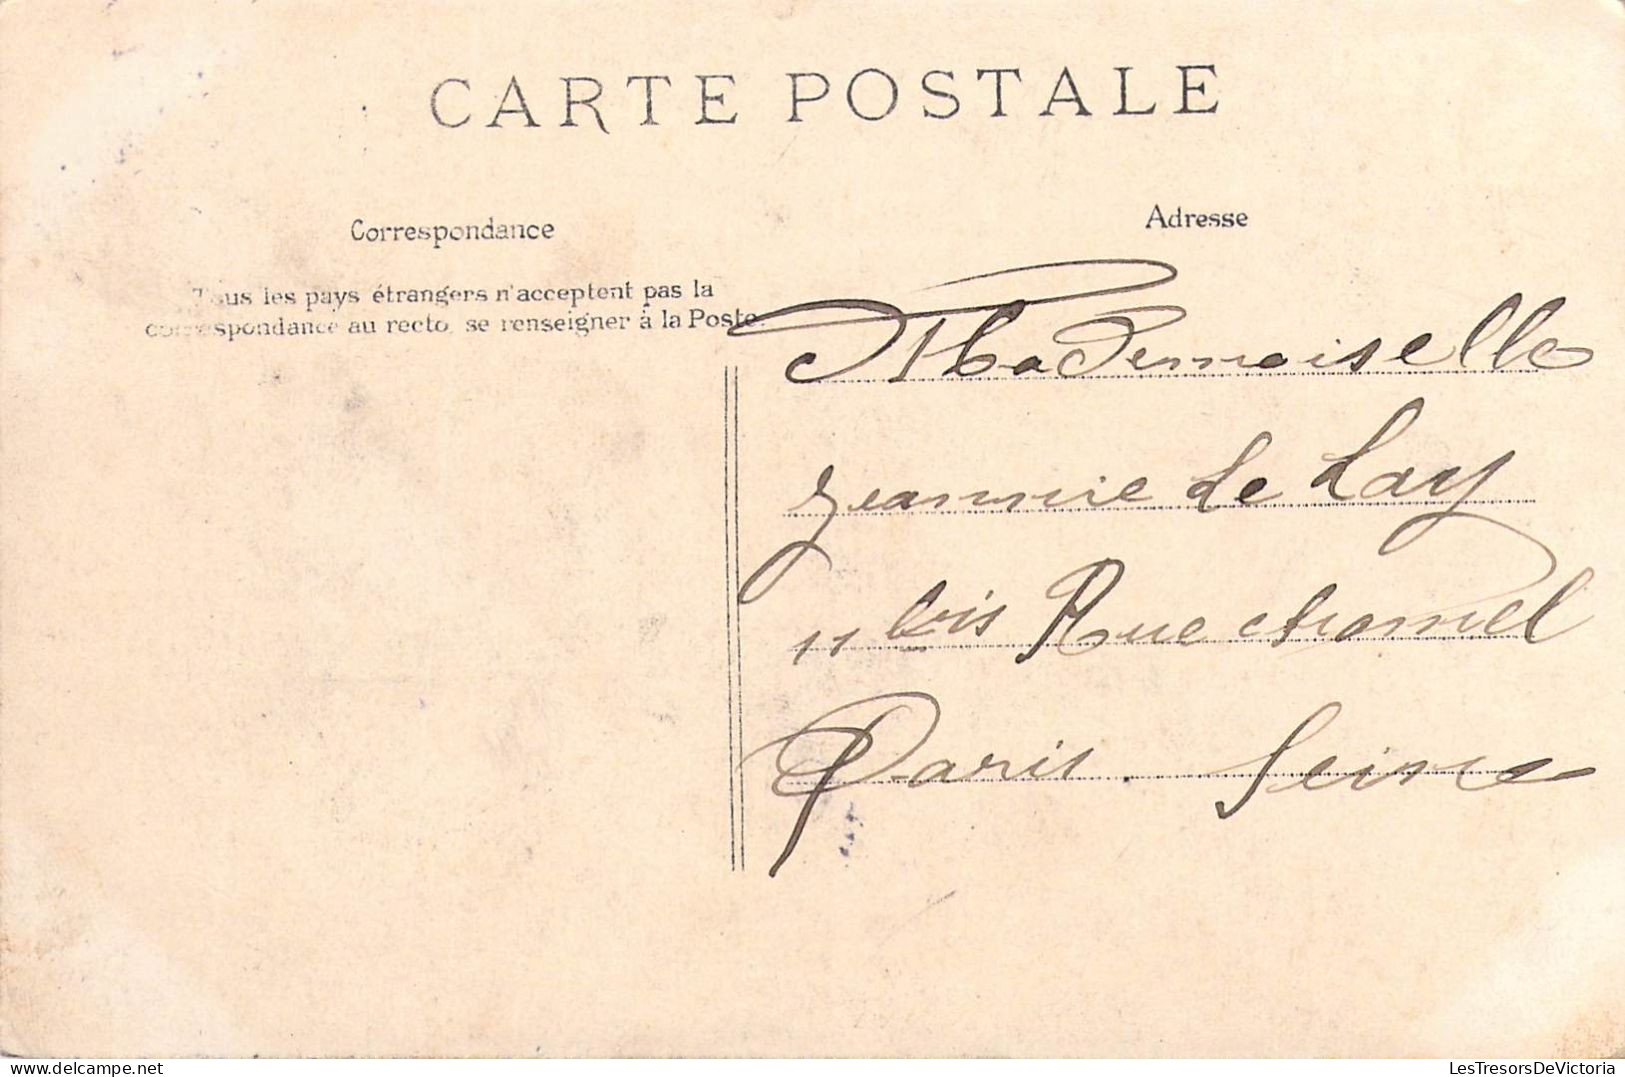 CARTE POSTALE
Correspondance
Tous les pays étrangers n'acceptent pas la
correspondance au recto, se renseigner à la Poste.
Adresse
Mademoiselle
Jeannie Le Lay
11 bis Rue chomel
Paris. Seine
LesTresorsDeVictoria